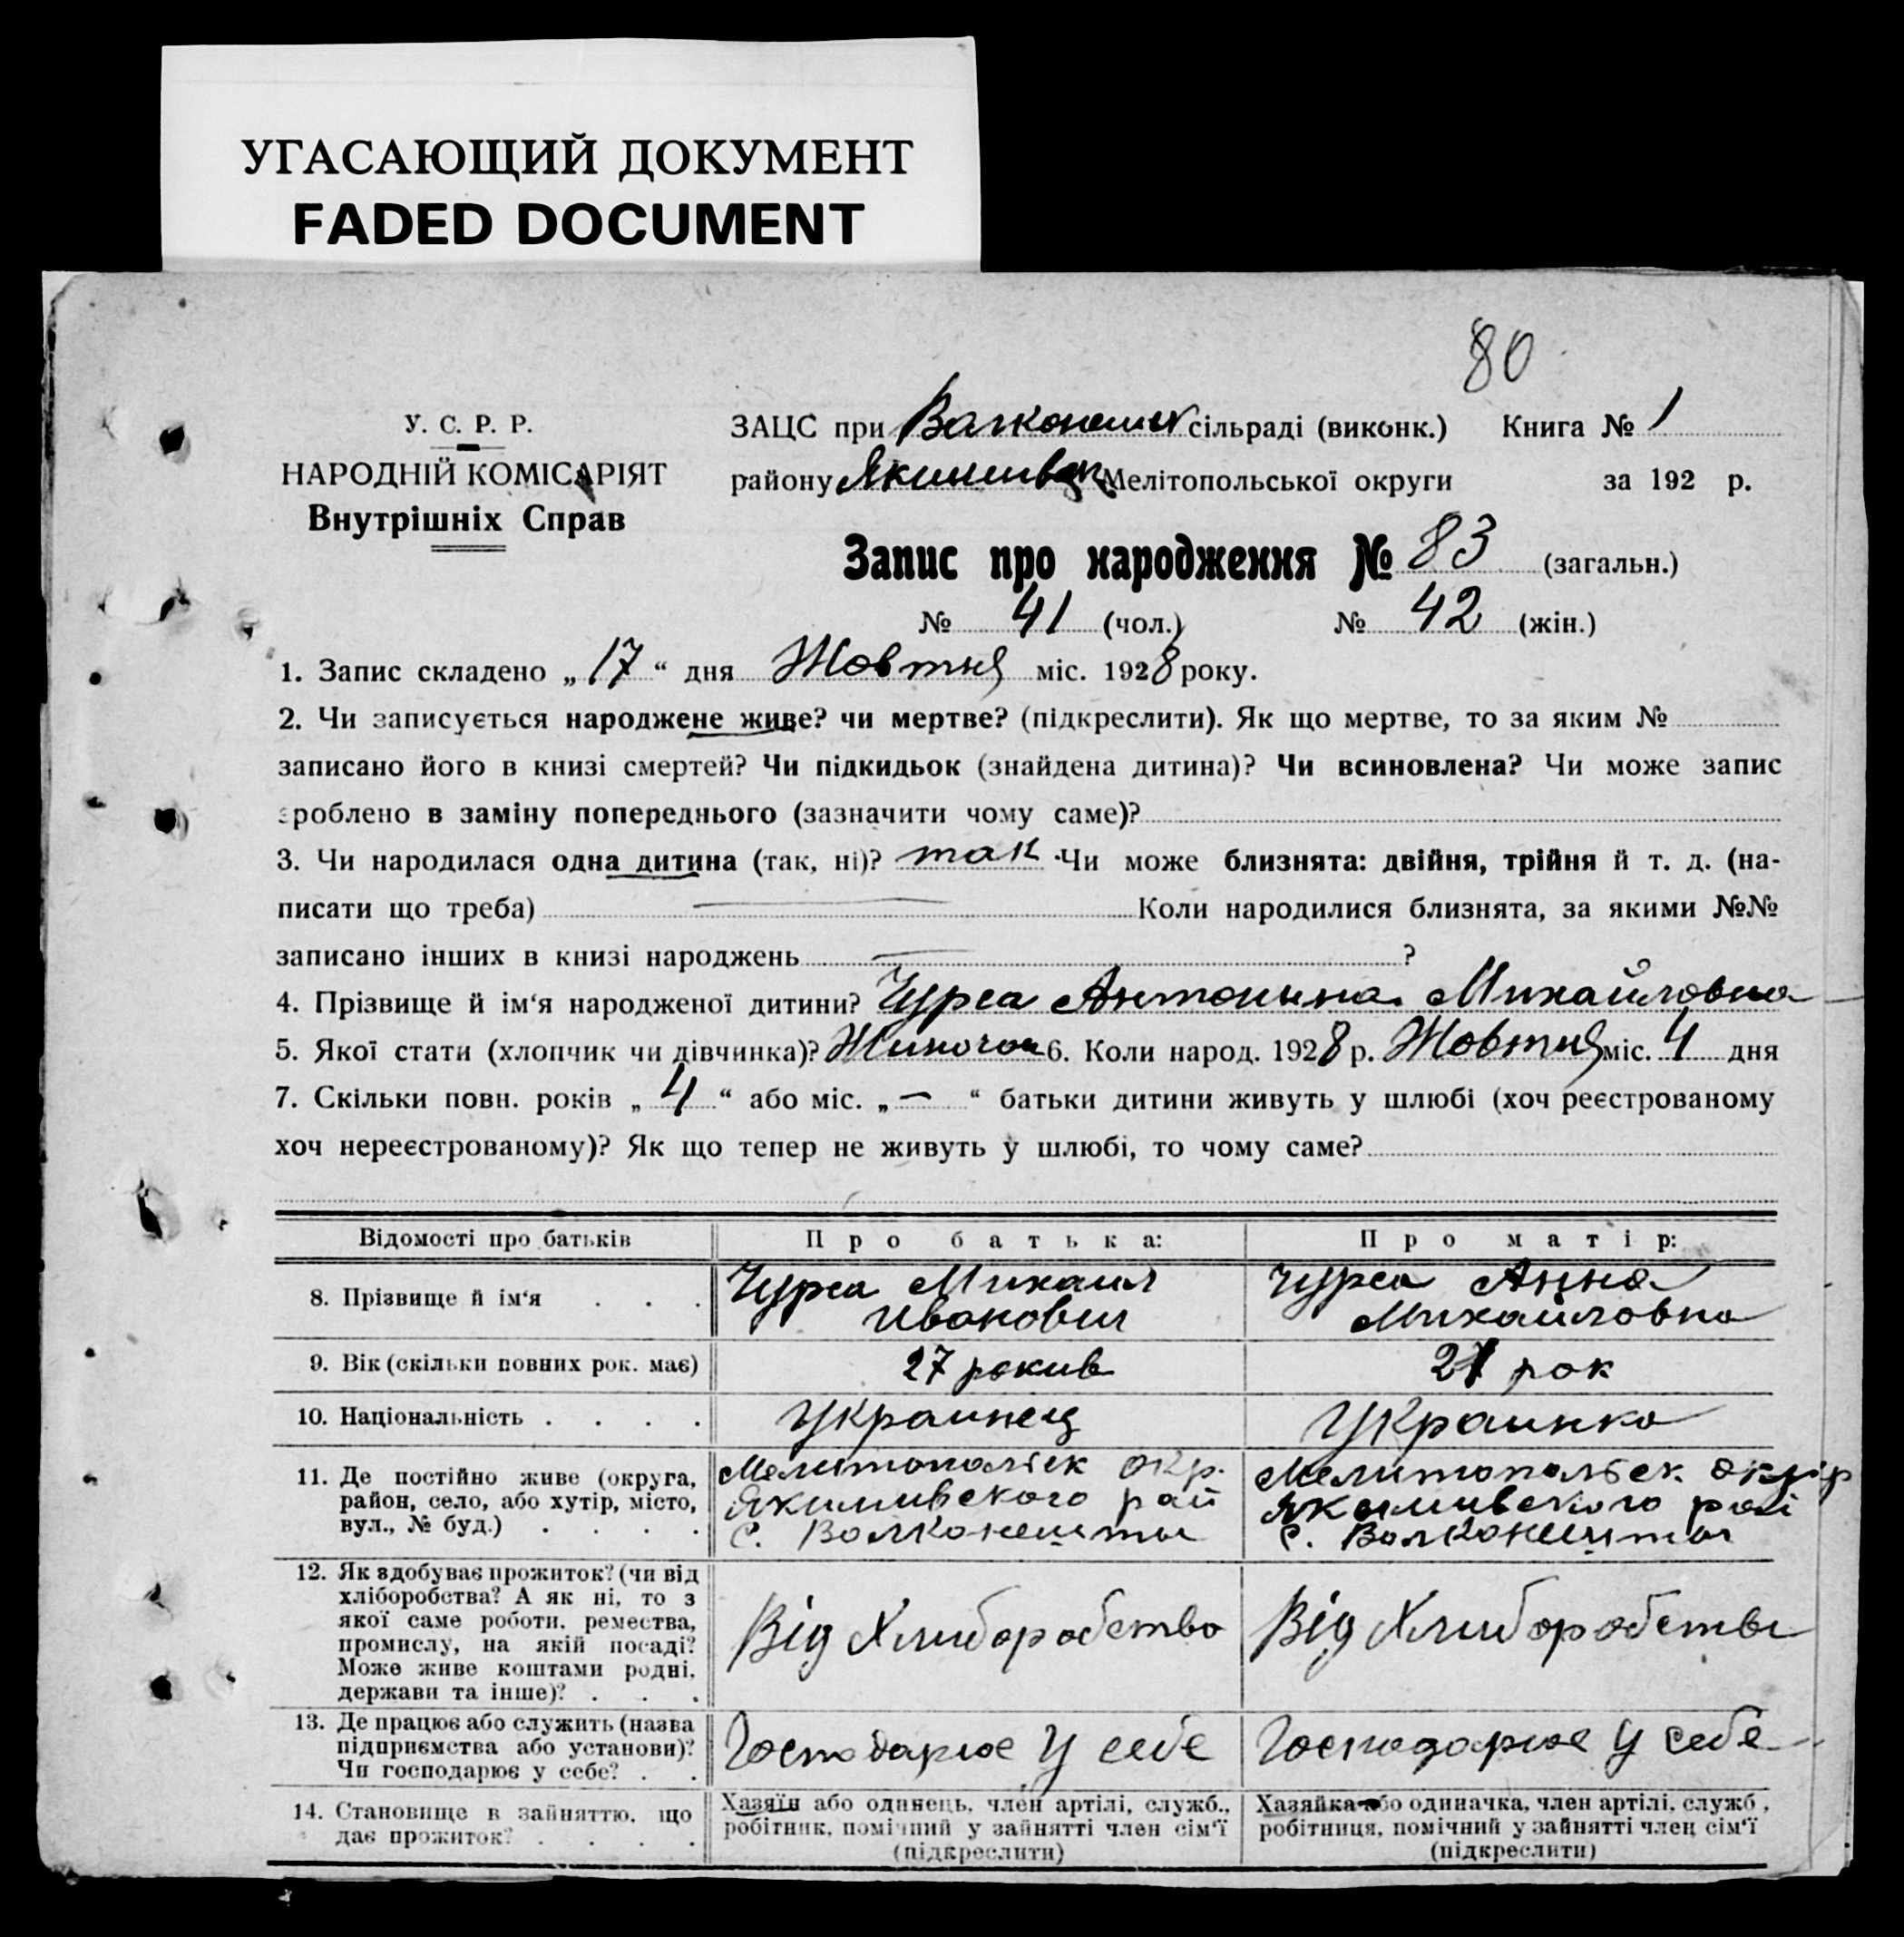 УГАСАЮЩИЙ ДОКУМЕНТ
FADED DOCUMENT
80
У. С. Р. Р.
НАРОДНІЙ КОМІСАРІЯТ
Внутрішніх Справ
ЗАЦС при сільраді (виконк.) Книга № 1
району Мелітопольської округи за 192 р.
Запис про народження № 83 (загальн.)
№ 41 (чол.) № 42 (жін.)
1. Запис складено „ 17 “ дня Жовтня міс. 1928 року.
2. Чи записується народжене живе? чи мертве? (підкреслити). Як що мертве, то за яким №
записано його в книзі смертей? Чи підкидьок (знайдена дитина)? Чи всиновлена? Чи може запис
зроблено в заміну попереднього (зазначити чому саме)?
3. Чи народилася одна дитина (так, ні)? так Чи може близнята: двійня, трійня й т. д. (на-
писати що треба) — Коли народилися близнята, за якими №№
записано інших в книзі народжень — ?
4. Прізвище й ім‘я народженої дитини? Чурса Антонина Михайловна
5. Якої стати (хлопчик чи дівчинка)? 6. Коли народ. 1928 р. Жовтня міс. 4 дня
7. Скільки повн. років „ 4 “ або міс. „ — “ батьки дитини живуть у шлюбі (хоч реєстрованому
хоч нереєстрованому)? Як що тепер не живуть у шлюбі, то чому саме?
Відомості про батьків Про батька: Про матір:
8. Прізвище й ім‘я . . . Чурса Михаил Чурса Анна
Иванович Михайловна
9. Вік (скільки повних рок. має) 27 рокив 21 рок
10. Національність . . . . Украинец Украинка
11. Де постійно живе (округа, Мелитопольск окр. Мелитопольск. окр
район, село, або хутір, місто, Якимивского рай Якимивского рай
вул., № буд.) . . . . с. Волконешты с. Волконешты
12. Як здобуває прожиток? (чи від
хліборобства? А як ні, то з
якої саме роботи, ремества,
промислу, на якій посаді? Від Хлиборобства Від Хлиборобства
Може живе коштами родні,
держави та інше)? . . .
13. Де працює або служить (назва
підприємства або установи)? Господарює у себе Господарює у себе
Чи господарює у себе? . .
14. Становище в зайняттю, що Хазяїн або одинець, член артілі, служб., Хазяйка або одиначка, член артілі, служб.,
дає прожиток? . . . . робітник, помічний у зайнятті член сім‘ї робітниця, помічний у зайнятті член сім‘ї
(підкреслити) (підкреслити)